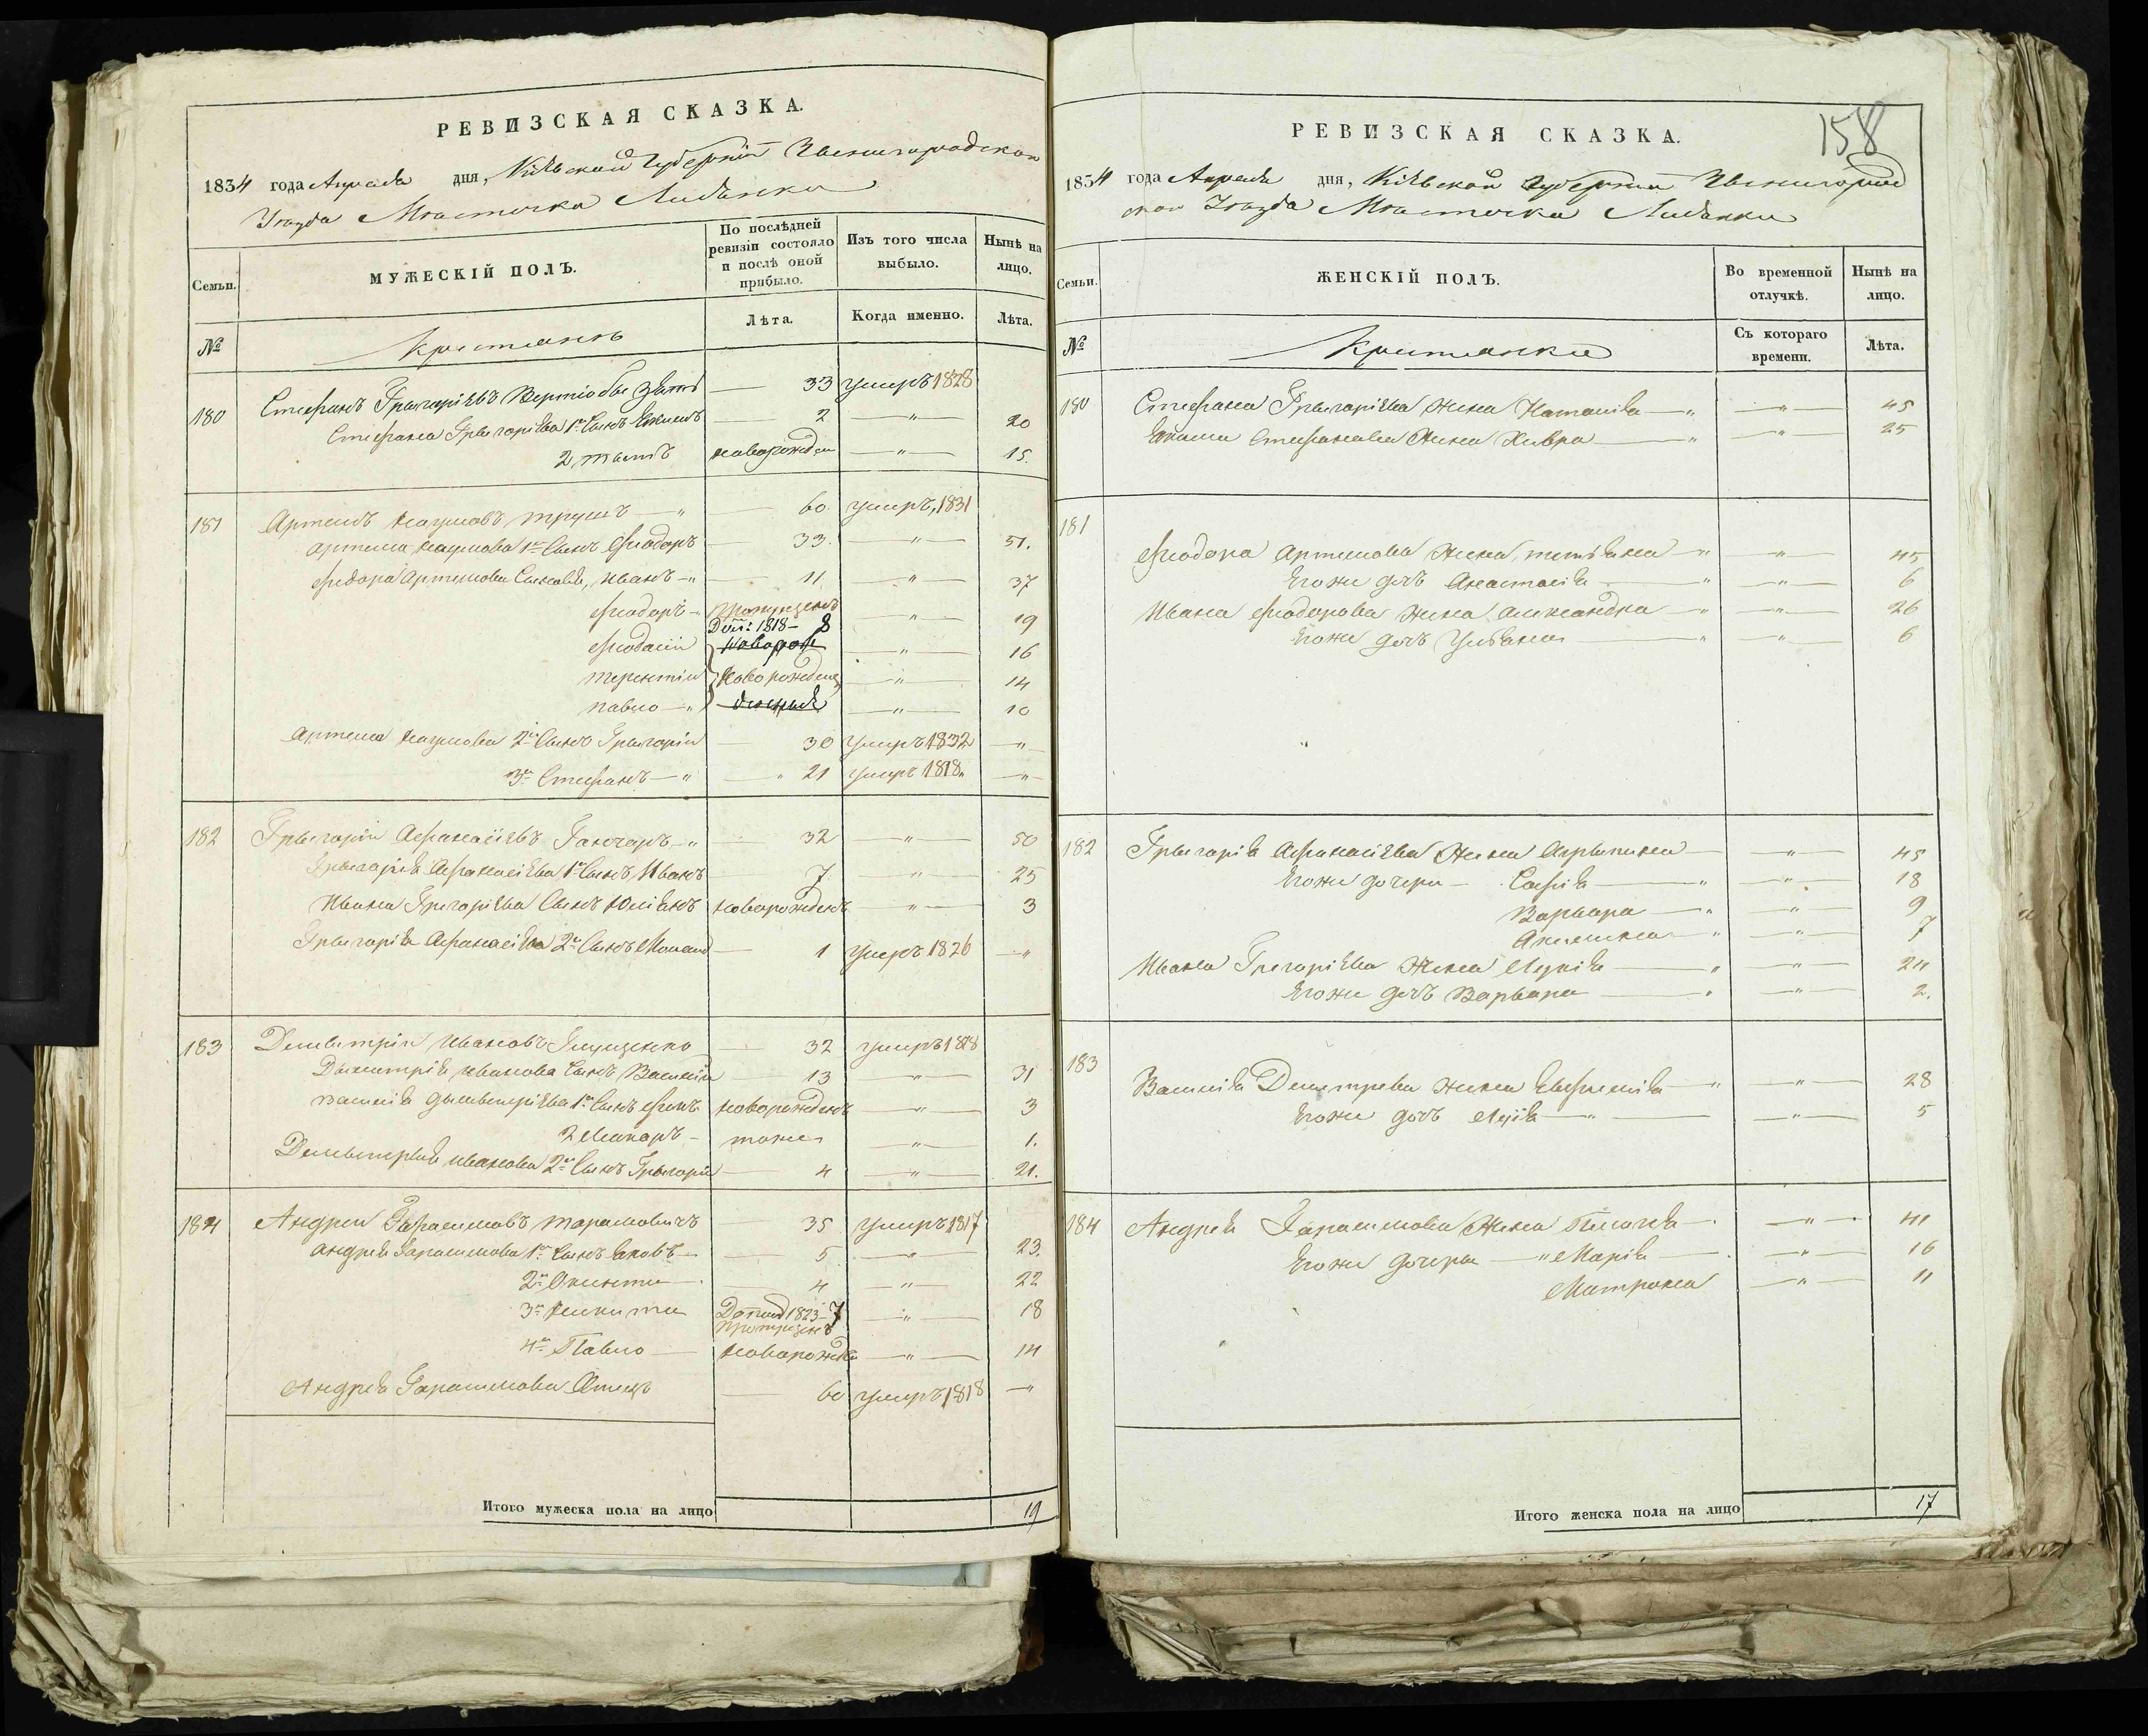 РЕВИЗСКАЯ СКАЗКА.
1834 года Апреля дня, Кіевской Губерніи Звенигородскои
Уѣзда Мѣстечка Лисянки
Семьи.
МУЖЕСКІЙ ПОЛЪ.
По послѣдней ревизіи состояло и послѣ оной прибыло.
Изъ того числа выбыло.
Нынѣ на лицо.
№
Крестьянъ
Лѣта.
Когда именно.
Лѣта.
180 Стефанъ Грыгоріевъ зять — 33 умеръ 1828
Стефана Грыгоріева 1й Сынъ Якимъ 2 — " — 20
2 новорожден — " — 15.
181 Артемъ Наумовъ — " — 60. умеръ, 1831
Артема Наумова 1й Сынъ Феодоръ 33. — " — 51.
Феодора Артемова Сыновья, Иванъ — " 11 — " — 37
Феодоръ — пропущенъ 8 — " — 19
Феодосій — " — 16
Терентій Новорожденъ — " — 14
Павло — " — " — 10
Артема Наумова 2й Сынъ Грыгорій 30 умеръ 1832 — " —
3й Стефанъ — " — " 21 умеръ 1818 " — " —
182 Грыгорій Афанасіевъ Гончаръ — " 32 — " — 50
Грыгорія Афанасіева 1й Сынъ Иванъ 7 — " — 25
Ивана Грегоріева Сынъ Юліянъ новорожденъ — " — 3
Грыгорія Афанасіева 2й Сынъ 1 умеръ 1826 — " —
183 Демьтрій Ивановъ — 32 умеръ 1828
Дыметрія Иванова Сынъ Василій 13 — " — 31
Василія 1й Сынъ новорожденъ — " — 3
2 Макаръ — тоже — " — 1.
Иванова 2й Сынъ Грыгорій 4 — " — 21.
184 Андрей Гарасимовъ Тарановичъ 35 умеръ 1817
Андрея Гарасимова 1й Сынъ Яковъ — 5 — " — 23.
2й — 4 — " — 22
3й Никита 1823 — 7 пропущенъ — " — 18
4й Павло — новорожден — " — 14
Андрея Гарасимова Отецъ 60 умеръ 1818 — " —
Итого мужеска пола на лицо 19
158
РЕВИЗСКАЯ СКАЗКА.
1834 года Апреля дня, Кіевской Губерніи Звенигород
скои Уѣзда Мѣстечка Лисянки
Семьи.
ЖЕНСКІЙ ПОЛЪ.
Во временной отлучкѣ.
Нынѣ на лицо.
№
Крестьянки
Съ котораго времени.
Лѣта.
180 Стефана Грыгоріева Жена Наталія — " — " — 45
Якима Стефанова Жена Хивра — " — " — 25
181
Феодора Артемова Жена Тетяна — " — " — 45
Егоже дочь Анастасія — " — " — 6
Ивана Феодорова Жена Александра — " — " — 26
Егоже дочь Ульяна — " — " — 6
182 Грыгорія Афанасіева Жена Агрыпина — " — 45
Егоже дочери — Софія — " — " — 18
Варвара — " — " — 9
Акилина — " — " — 7
Ивана Грегоріева Жена Лукія — " — " — 24
Егоже дочь Варвара — " — " — 2.
183
Василія Деметрева жена Евфимія — " — " — 28
Егоже дочь — " — " — 5
184 Андрея Гарасимова Жена Пелагія — " — 41
Егоже дочеры — " Марія — " — 16
Матрона — " — 11
Итого женска пола на лицо 17